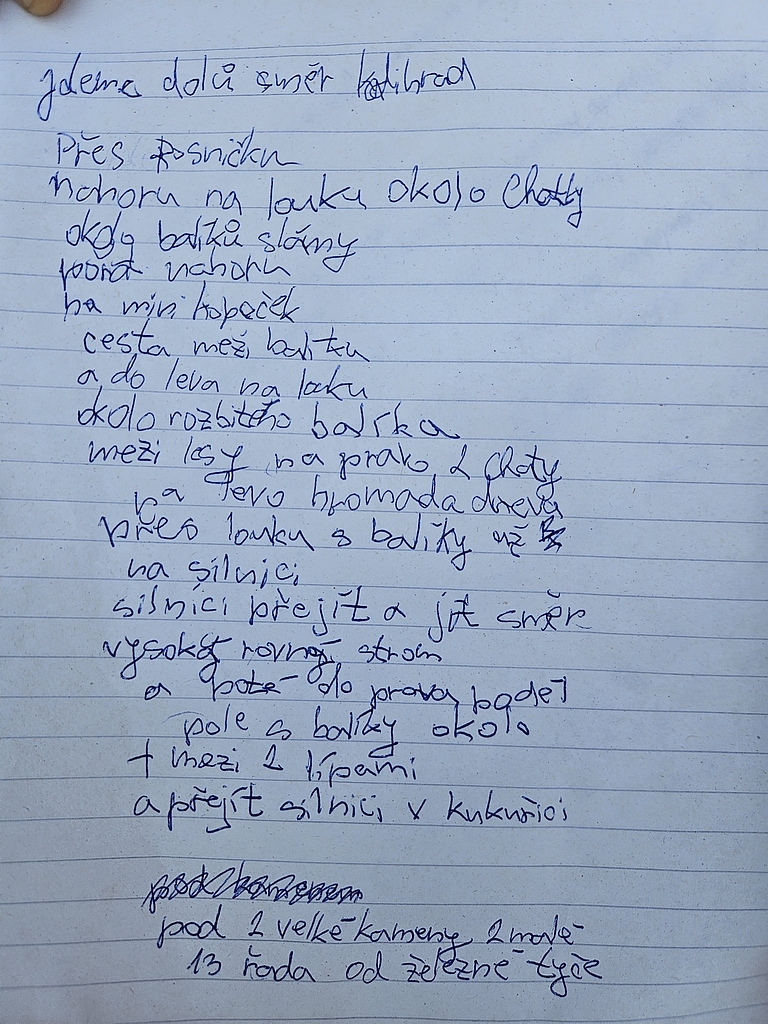 jdeme dolů směr
Přes Rosničku
nahoru na louku okolo Chaty
okolo balíků slámy
pořát nahoru
na mini kopeček
cesta mezi balíku
a do leva na louku
okolo rozbitého balíka
mezi lesy na pravo 2 chaty
na levo hromada dřeva
přes louku s balíky až
na silnici
silnici přejít a jít směr
vysoký rovný strom
a poté do prava podél
pole s balíky okolo
+ mezi 2 lípami
a přejít silnici v kukuřici
pod 2 velké kameny 2 malé
13 řada od železné tyče